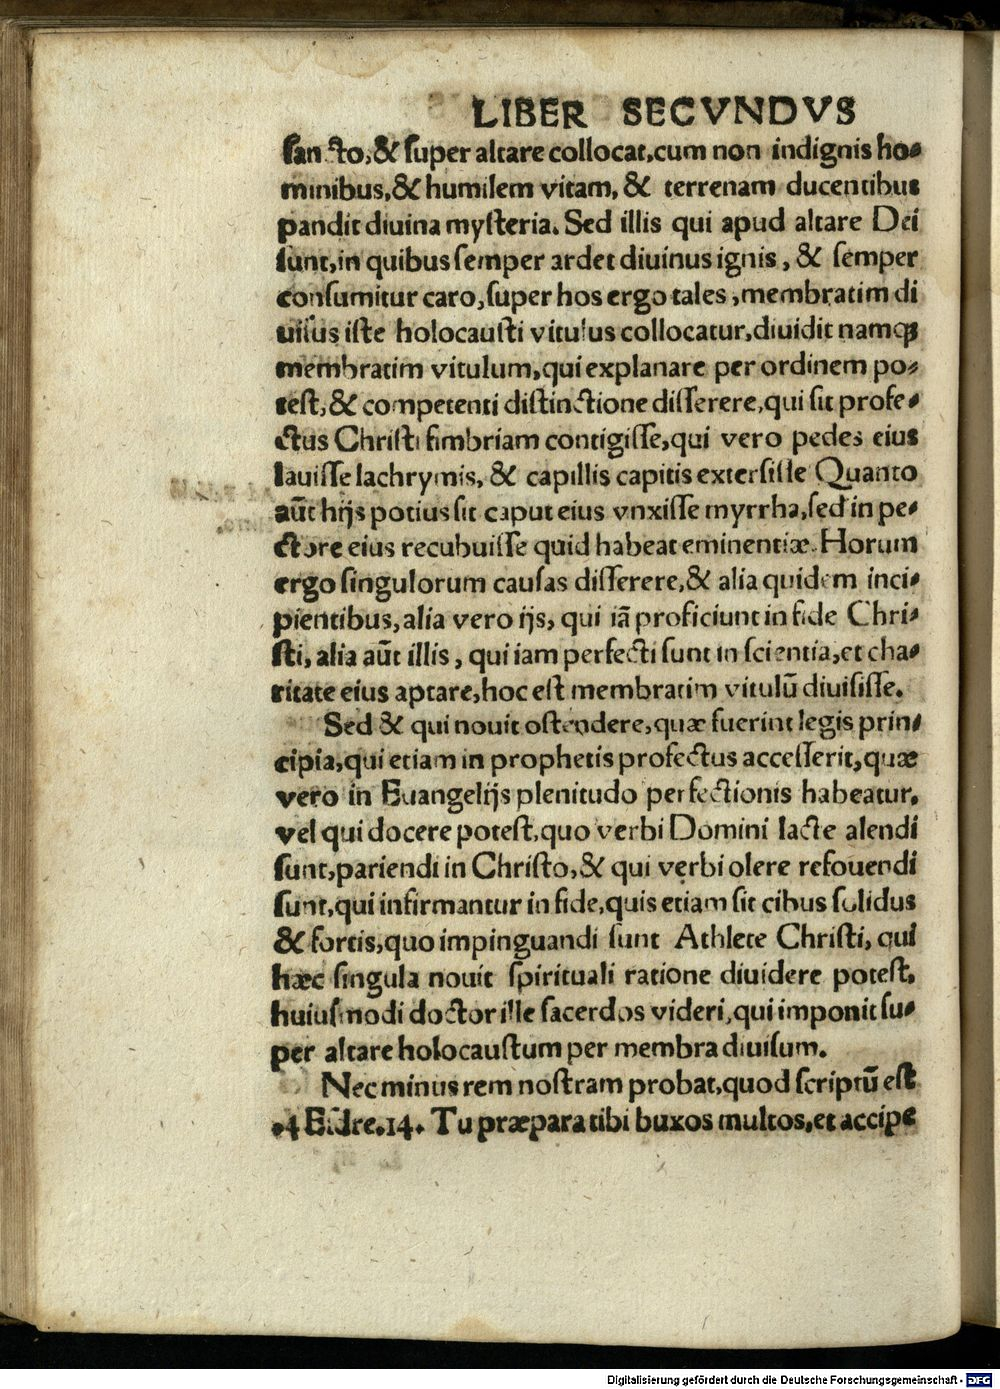 LIBER SECVNDVS
sancto,& super altare collocat,cum non indignis ho-
minibus,& humilem vitam, & terrenam ducentibus
pandit diuina mysteria. Sed illis qui apud altare Dei
sunt,in quibus semper ardet diuinus ignis, & semper
consumitur caro,super hos ergo tales,membratim di
uisus iste holocausti vitulus collocatur,diuidit namq;
membratim vitulum,qui explanare per ordinem po-
test,& competenti distinctione disserere,qui sit profe-
ctus Christi fimbriam contigisse,qui vero pedes eius
lauisse lachrymis, & capillis capitis extersisse Quanto
aūt hijs potius sit caput eius vnxisse myrrha,sed in pe-
ctore eius recubuisse quid habeat eminentiæ. Horum
ergo singulorum causas disserere,& alia quidem inci-
pientibus,alia vero ijs, qui iā proficiunt in fide Chri-
sti, alia aūt illis, qui iam perfecti sunt in scientia,et cha-
ritate eius aptare,hoc est membratim vitulū diuisisse.
Sed & qui nouit ostendere,quæ fuerint legis prin-
cipia,qui etiam in prophetis profectus accesserit,quæ
vero in Euangelijs plenitudo perfectionis habeatur.
vel qui docere potest,quo verbi Domini lacte alendi
sunt,pariendi in Christo,& qui verbi olere refouendi
sunt,qui infirmantur in fide,quis etiam sit cibus solidus
& fortis,quo impinguandi sunt Athlete Christi, qui
hæc singula nouit spirituali ratione diuidere potest.
huiusmodi doctor ille sacerdos videri,qui imponit su-
per altare holocaustum per membra diuisum.
Nec minus rem nostram probat,quod scriptū est
.4 Esdre.14. Tu præpara tibi buxos multos,et accipe
Digitalisierung gefördert durch die Deutsche Forschungsgemeinschaft - DFG